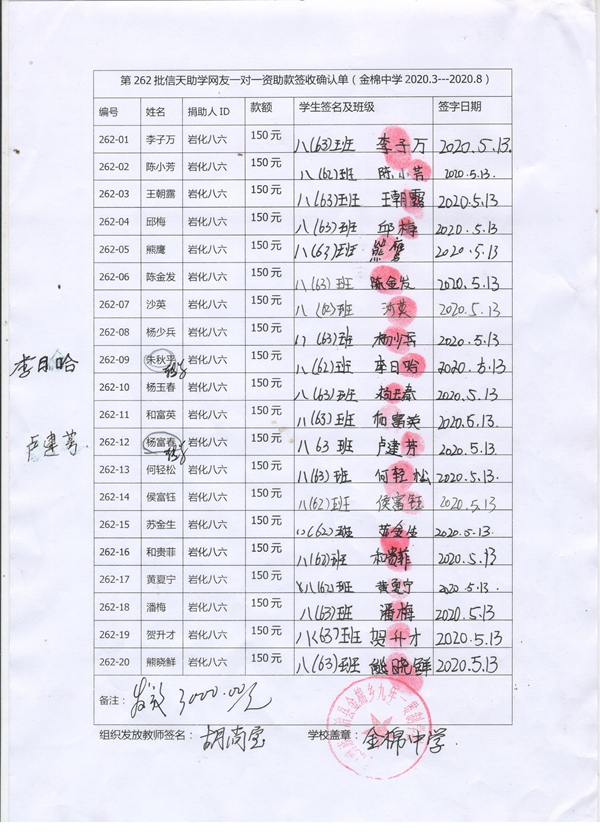 第 262 批信天助学网友一对一资助款签收确认单（金棉中学 2020.3---2020.8）
编号 姓名 捐助人 ID 款额 学生签名及班级 签字日期
262-01 李子万 岩化八六 150 元 八(63)班 李子万 2020.5.13.
262-02 陈小芳 岩化八六 150 元 八(62)班 陈小芳 2020.5.13
262-03 王朝露 岩化八六 150 元 八(63)班 王朝露 2020.5.13
262-04 邱梅 岩化八六 150 元 八(63)班 邱梅 2020.5.13
262-05 熊鹰 岩化八六 150 元 八(63)班 熊鹰 2020.5.13
262-06 陈金发 岩化八六 150 元 八(63)班 陈金发 2020.5.13
262-07 沙英 岩化八六 150 元 八(62)班 沙英 2020.5.13
262-08 杨少兵 岩化八六 150 元 八(63)班 杨少兵 2020.5.13
李日哈 262-09 朱秋 岩化八六 150 元 八(62)班 李日哈 2020.5.13
262-10 杨玉春 岩化八六 150 元 八(63)班 杨玉春 2020.5.13
262-11 和富英 岩化八六 150 元 八(63)班 和富英 2020.5.13
卢建芳. 262-12 杨富春 岩化八六 150 元 八 63 班 卢建芳 2020.5.13
262-13 何轻松 岩化八六 150 元 八(63)班 何轻松 2020.5.13
262-14 侯富钰 岩化八六 150 元 八(62)班 侯富钰 2020.5.13
262-15 苏金生 岩化八六 150 元 八(62)班 苏金生 2020.5.13
262-16 和贵菲 岩化八六 150 元 八(62)班 和贵菲 2020.5.13
262-17 黄夏宁 岩化八六 150 元 八(62)班 黄夏宁 2020.5.13
262-18 潘梅 岩化八六 150 元 八(63)班 潘梅 2020.5.13
262-19 贺升才 岩化八六 150 元 八(63)班 贺升才 2020.5.13
262-20 熊晓鲜 岩化八六 150 元 八(63)班 熊晓鲜 2020.5.13
备注： 发放 3000.00元
组织发放教师签名： 胡尚宝 学校盖章： 金棉中学.